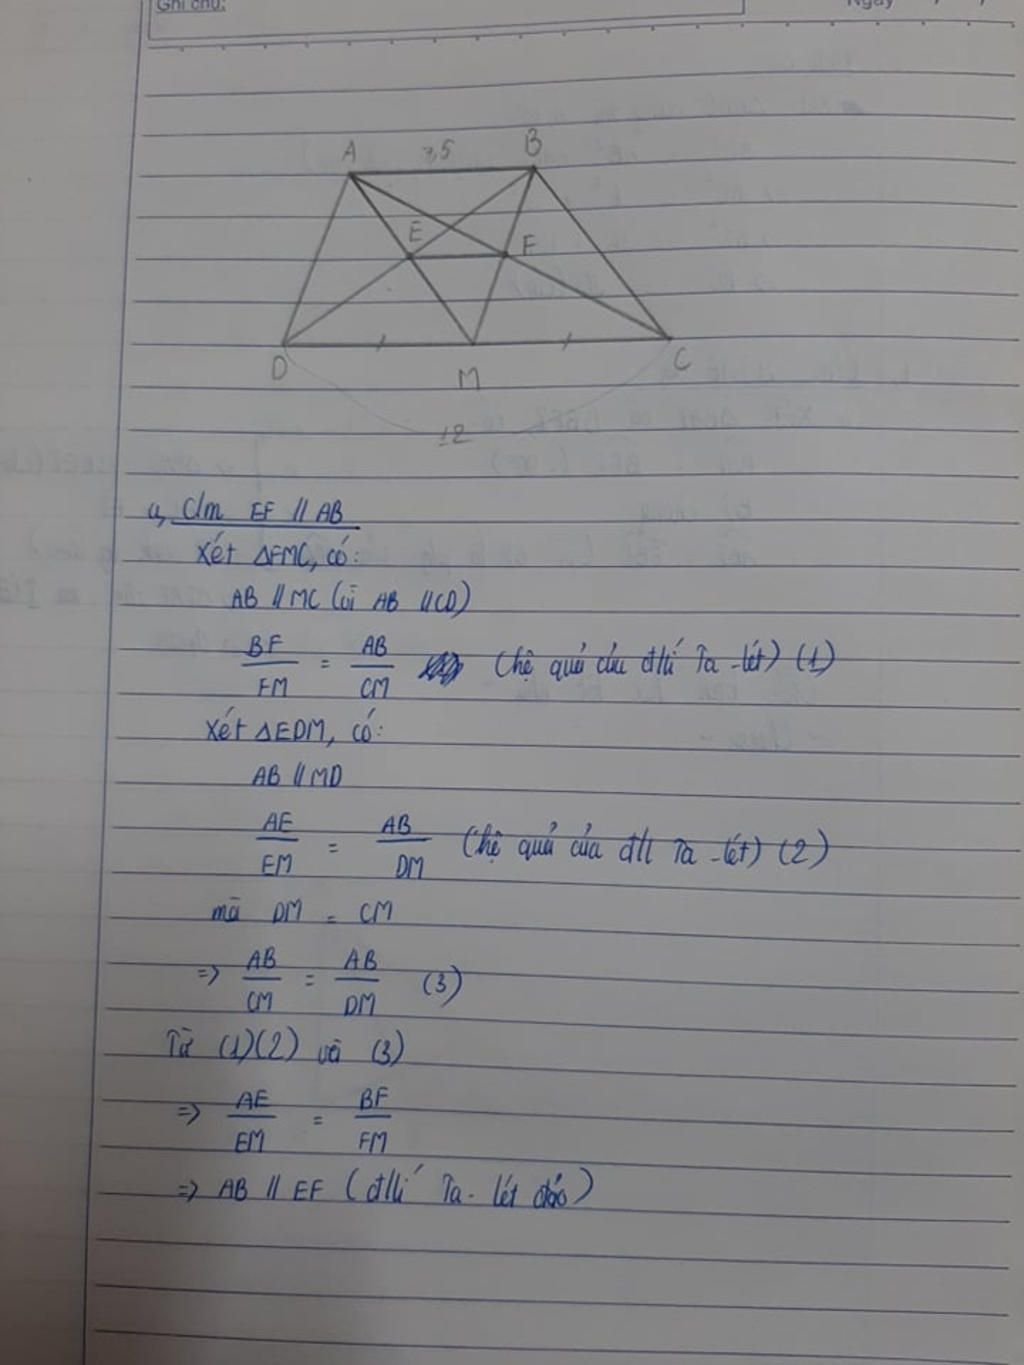 Ghi chú:
Ngày
A 7,5 B
E F
D M C
12
a, C/m EF // AB
Xét ΔFMC, có:
AB // MC (vì AB // CD)
BF/FM = AB/CM (hệ quả của đlí Ta-lét) (1)
Xét ΔEDM, có:
AB // MD
AE/EM = AB/DM (hệ quả của đlí Ta-lét) (2)
mà DM = CM
=> AB/CM = AB/DM (3)
Từ (1)(2) và (3)
=> AE/EM = BF/FM
=> AB // EF (đlí Ta-lét đảo)